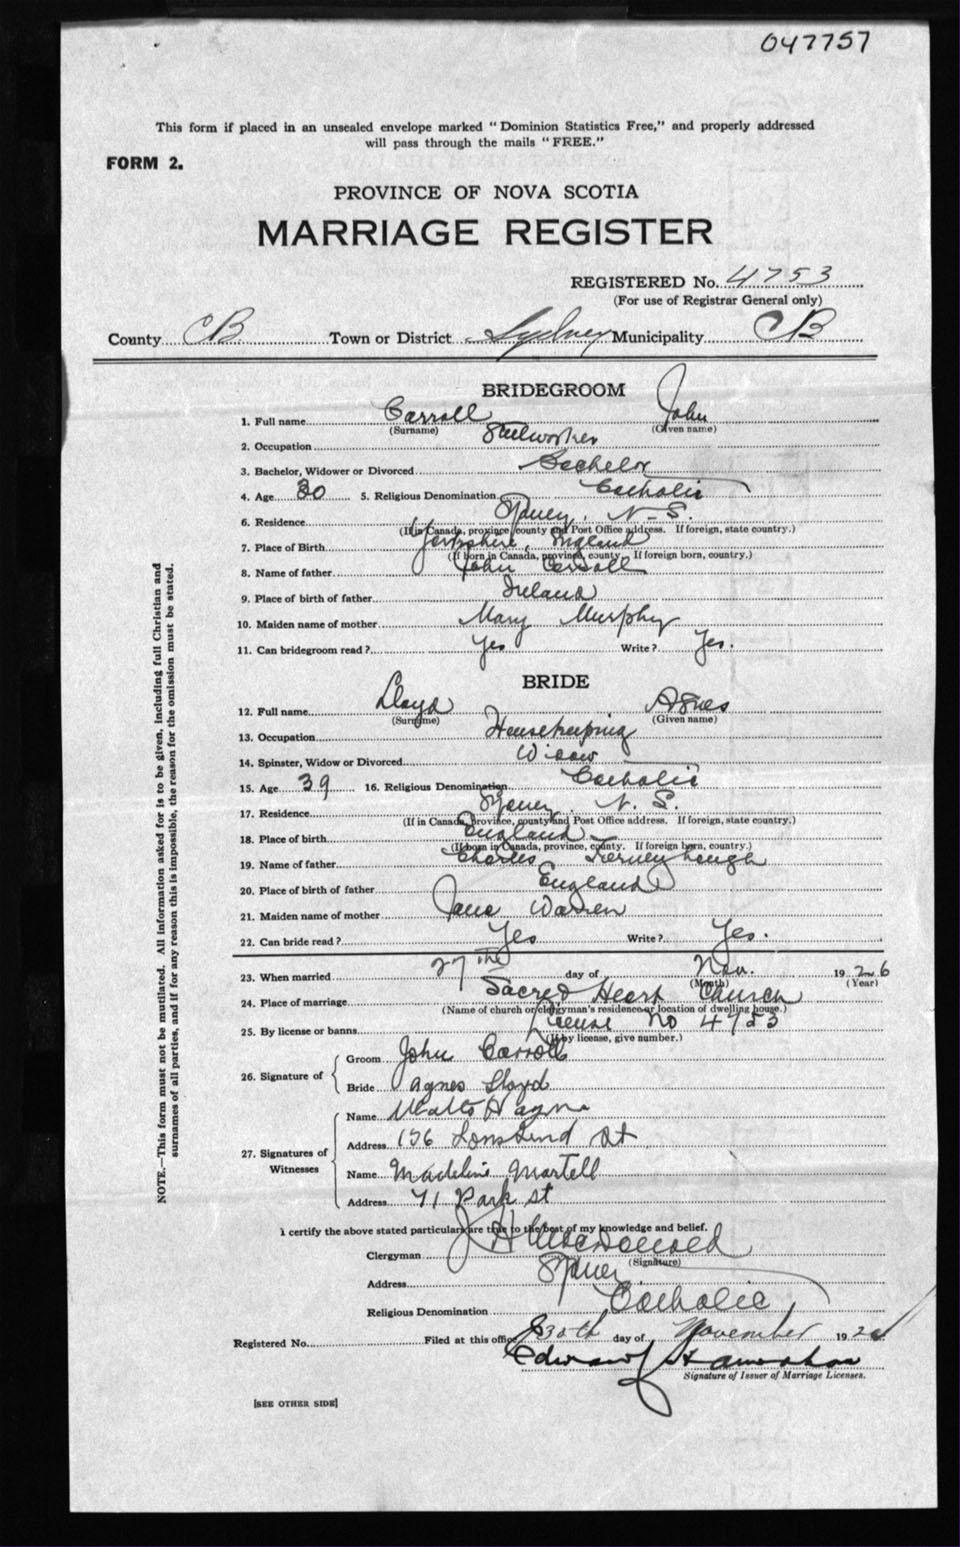 047757
This form if placed in an unsealed envelope marked "Dominion Statistics Free," and properly addressed
will pass through the mails "FREE."
FORM 2.
PROVINCE OF NOVA SCOTIA
MARRIAGE REGISTER
REGISTERED No. 4753
(For use of Registrar General only)
County CB Town or District Sydney Municipality CB
BRIDEGROOM
1. Full name Carroll John
(Surname) (Given name)
2. Occupation Steelworker
3. Bachelor, Widower or Divorced Bachelor
4. Age 30 5. Religious Denomination Catholic
6. Residence Sydney, N.S.
(If in Canada, province, county and Post Office address. If foreign, state country.)
7. Place of Birth Yorkshire, England
(If born in Canada, province, county. If foreign born, country.)
8. Name of father John Carroll
9. Place of birth of father Ireland
10. Maiden name of mother Mary Murphy
11. Can bridegroom read? Yes Write? Yes.
BRIDE
12. Full name Lloyd Agnes
(Surname) (Given name)
13. Occupation Housekeeping
14. Spinster, Widow or Divorced Widow
15. Age 39 16. Religious Denomination Catholic
17. Residence Sydney N. S.
(If in Canada, province, county and Post Office address. If foreign, state country.)
18. Place of birth England
(If born in Canada, province, county. If foreign born, country.)
19. Name of father Charles
20. Place of birth of father England
21. Maiden name of mother Jane Warren
22. Can bride read? Yes Write? Yes.
23. When married 27th day of Nov. 1926
(Month) (Year)
24. Place of marriage Sacred Heart Church
(Name of church or clergyman's residence or location of dwelling house.)
25. By license or banns License No 4753
(If by license, give number.)
26. Signature of Groom John Carroll
Bride Agnes Lloyd
27. Signatures of Witnesses Name
Address 156 St
Name Madeline Martell
Address 71 Park st
I certify the above stated particulars are true to the best of my knowledge and belief.
Clergyman J H MacDonald
(Signature)
Address Sydney
Religious Denomination Catholic
Registered No. Filed at this office 30th day of November 1926
Edward
Signature of Issuer of Marriage Licenses.
[SEE OTHER SIDE]
NOTE.—This form must not be mutilated. All information asked for is to be given, including full Christian and
surnames of all parties, and if for any reason this is impossible, the reason for the omission must be stated.